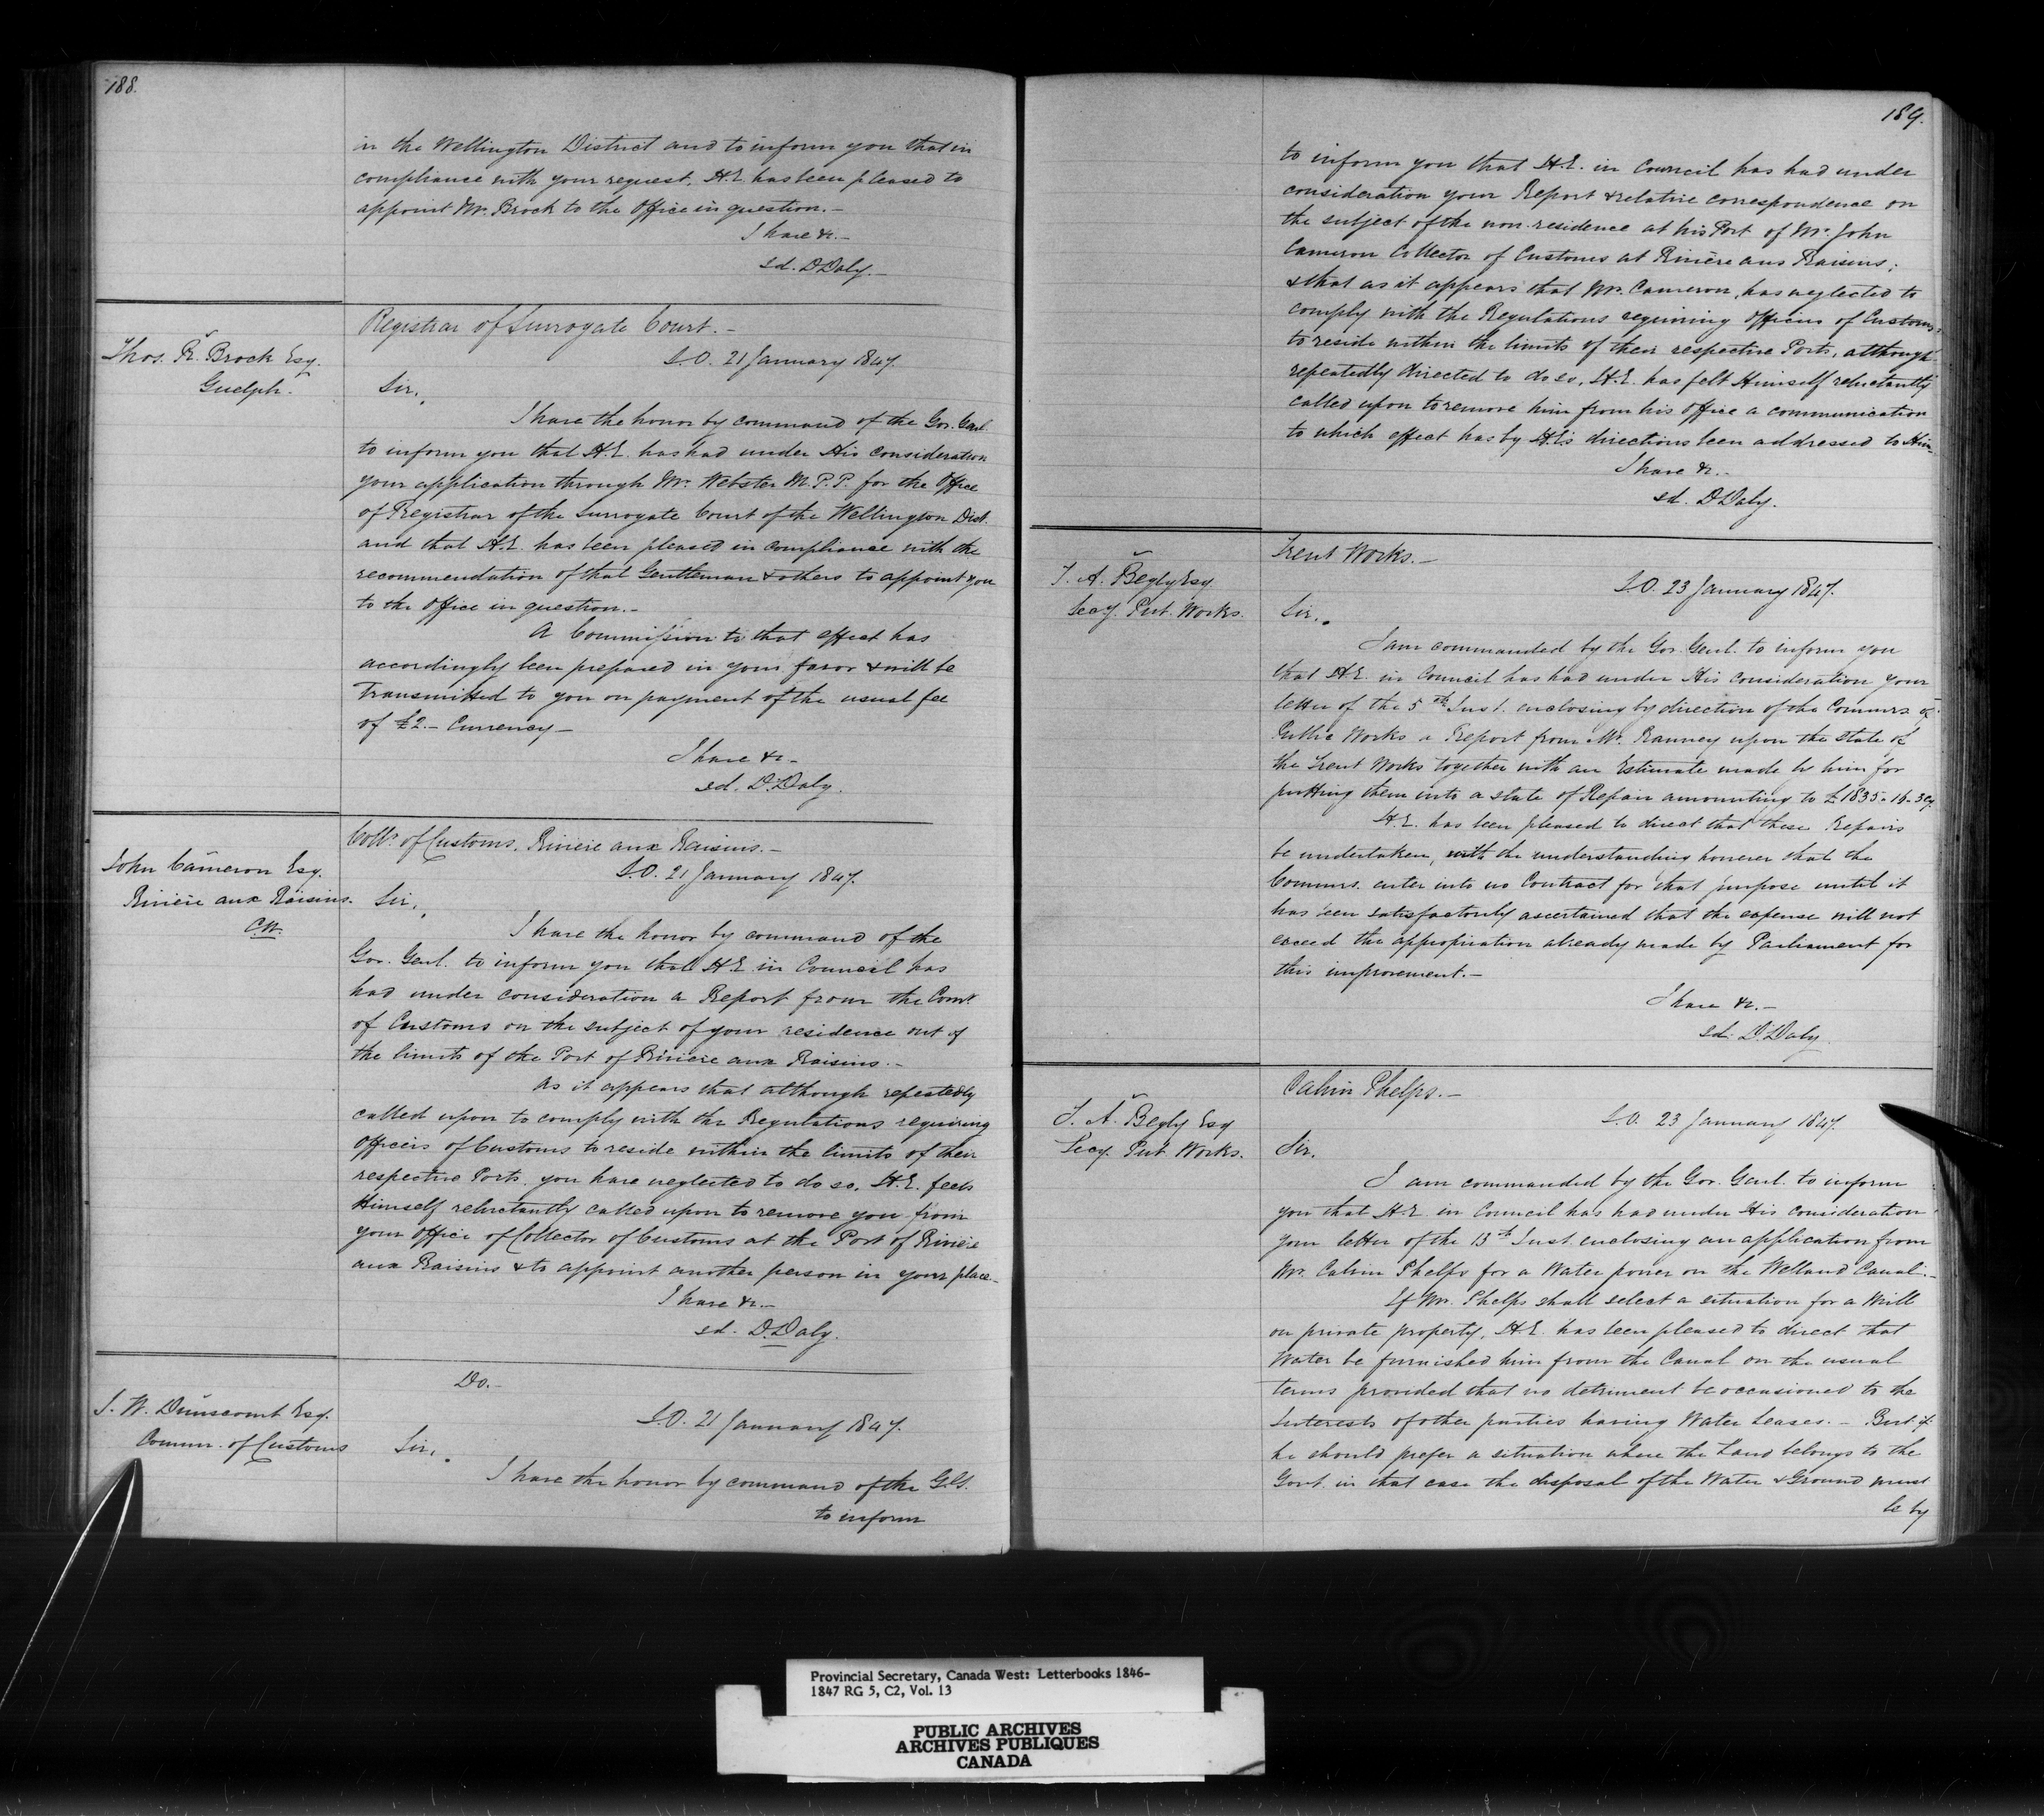 188.
in the Wellington District and to inform you that in
compliance with your request, H.E. has been pleased to
appoint Mr. Brock to the Office in question.—
I have &c.—
sd. D Daly.—
Thos. R. Brock Esq.
Guelph.
Registrar of Surrogate Court.—
S.O. 21 January 1847.
Sir,
I have the honor by command of the Gov. Genl.
to inform you that H.E. has had under His consideration
your application through Mr. Webster M.P.P. for the Office
of Registrar of the Surrogate Court of the Wellington Dist.
and that H.E. has been pleased in compliance with the
recommendation of that Gentleman & others to appoint you
to the Office in question.—
A Commission to that effect has
accordingly been prepared in your favor & will be
Transmitted to you on payment of the usual fee
of £2.— Currency—
I have &c.—
sd. D. Daly.
John Cameron Esq.
Rivière aux Raisins.
C.W.
Collr. of Customs, Rivière aux Raisins.—
S.O. 21 January 1847.
Sir,
I have the honor by command of the
Gov. Genl. to inform you that H.E. in Council has
had under consideration a Report from the Comr.
of Customs on the subject of your residence out of
the limits of the Port of Rivière aux Raisins.—
As it appears that although repeatedly
called upon to comply with the Regulations requiring
Officers of Customs to reside within the limits of their
respective Ports, you have neglected to do so, H.E. feels
Himself reluctantly called upon to remove you from
your Office of Collector of Customs at the Port of Rivière
aux Raisins & to appoint another person in your place.—
I have &c.—
sd. D. Daly.
J. W. Dunscomb Esq.
Commr. of Customs
Do.—
S.O. 21 January 1847.
Sir,
I have the honor by command of the G.G.
to inform
189.
to inform you that H.E. in Council has had under
consideration your Report & relative correspondence on
the subject of the non-residence at his Port of Mr. John
Cameron Collector of Customs at Rivière aux Raisins;
& that as it appears that Mr. Cameron, has neglected to
comply with the Regulations requiring Officers of Customs
to reside within the limits of their respective Ports, although
repeatedly directed to do so, H.E. has felt Himself reluctantly
called upon to remove him from his Office a communication
to which effect has by H.E's directions been addressed to Him
I have &c.—
sd. D Daly.
T. A. Begly Esq
Secy. Pub. Works.
Trent Works.—
S.O. 23 January 1847.
Sir,
I am commanded by the Gov. Genl. to inform you
that H.E. in Council has had under His consideration your
letter of the 5th Inst. enclosing by direction of the Commrs of
Public Works a Report from Mr. Ranney upon the state of
the Trent Works together with an Estimate made by him for
putting them into a state of Repair amounting to £1835-16-3 Cy.
H.E. has been pleased to direct that these Repairs
be undertaken, with the understanding however that the
Commrs. enter into no Contract for that purpose until it
has been satisfactorily ascertained that the expense will not
exceed the appropriation already made by Parliament for
this improvement.—
I have &c.—
sd. D. Daly
T. A. Begly Esq
Secy. Pub. Works.
Calvin Phelps.—
S.O. 23 January 1847.
Sir,
I am commanded by the Gov. Genl. to inform
you that H.E. in Council has had under His consideration
your letter of the 13th Inst. enclosing an application from
Mr. Calvin Phelps for a Water power on the Welland Canal.—
If Mr. Phelps shall select a situation for a Mill
on private property, H.E. has been pleased to direct that
Water be furnished him from the Canal on the usual
terms provided that no detriment be occasioned to the
Interests of other parties having Water Leases.— But if
he should prefer a situation where the Land belongs to the
Govt. in that case the disposal of the Water & Ground must
be by
Provincial Secretary, Canada West: Letterbooks 1846-
1847 RG 5, C2, Vol. 13
PUBLIC ARCHIVES
ARCHIVES PUBLIQUES
CANADA